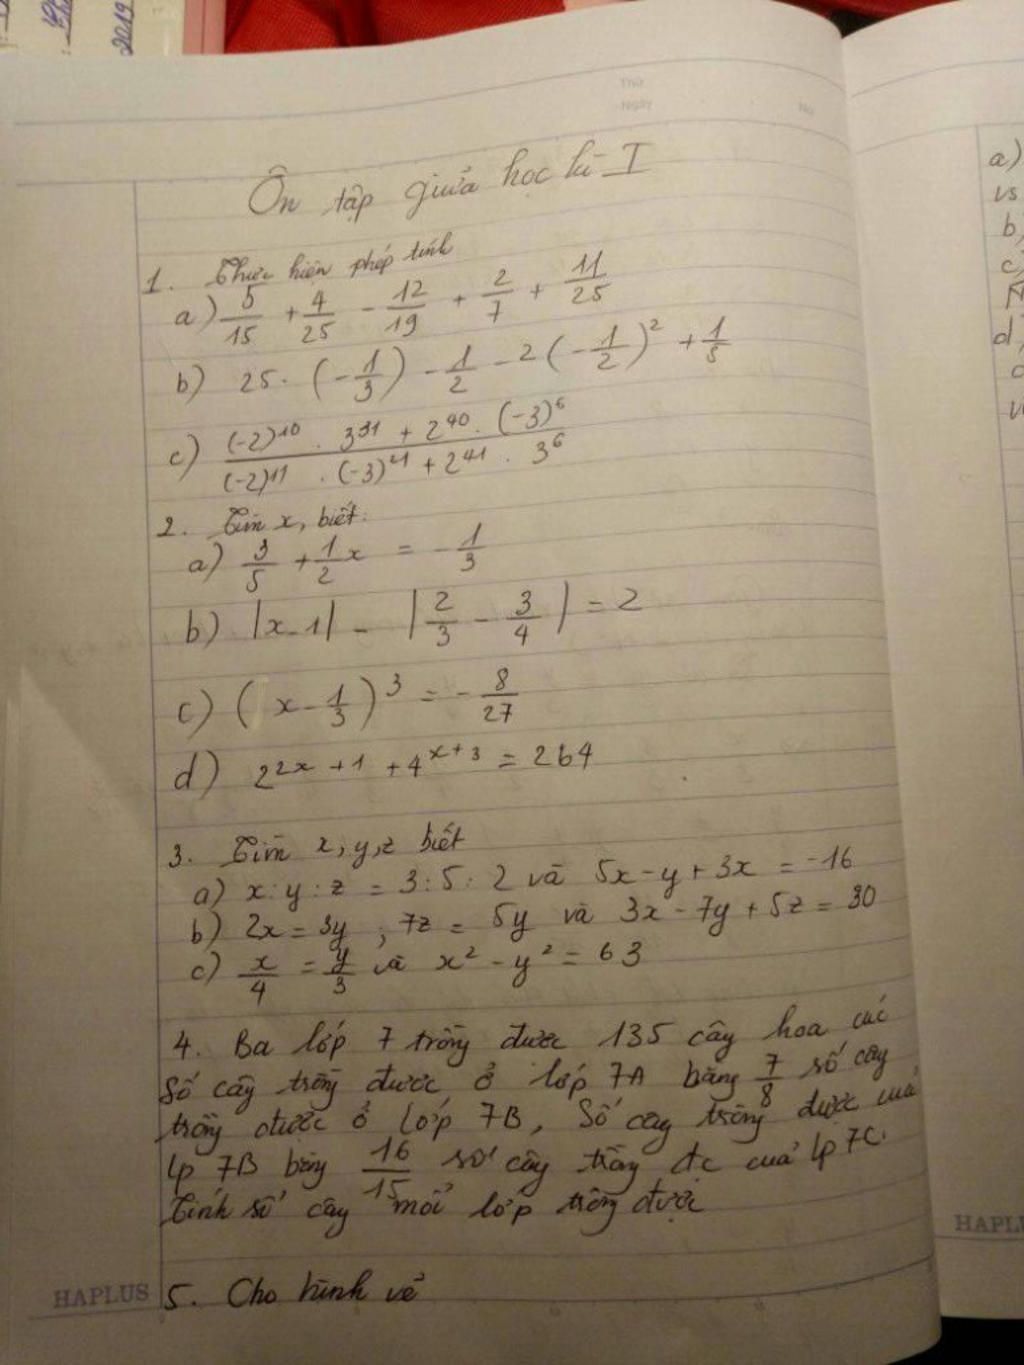 2019
Thứ
Ngày
No
Ôn tập giữa học kì I
1. Thực hiện phép tính
a) 5/15 + 4/25 - 12/19 + 2/7 + 11/25
b) 25. (-1/3) - 1/2 - 2(-1/2)² + 1/5
c) (-2)¹⁰ . 3³¹ + 2⁴⁰ . (-3)⁶
(-2)¹¹ . (-3)²¹ + 2⁴¹ . 3⁶
2. Tìm x, biết:
a) 3/5 + 1/2 x = -1/3
b) |x-1| - |2/3 - 3/4| = 2
c) (x - 1/3)³ = -8/27
d) 2²ˣ⁺¹ + 4ˣ⁺³ = 264
3. Tìm x, y, z biết
a) x : y : z = 3 : 5 : 2 và 5x - y + 3x = -16
b) 2x = 3y ; 7z = 5y và 3x - 7y + 5z = 30
c) x/4 = y/3 và x² - y² = 63
4. Ba lớp 7 trồng được 135 cây hoa các
số cây trồng được ở lớp 7A bằng 7/8 số cây
trồng được ở lớp 7B, Số cây trồng được của
lp 7B bằng 16/15 số cây trồng đc của lp 7C.
Tính số cây mỗi lớp trồng được
5. Cho hình vẽ
HAPLUS
a)
vs
b)
c)
d)
HAPLU